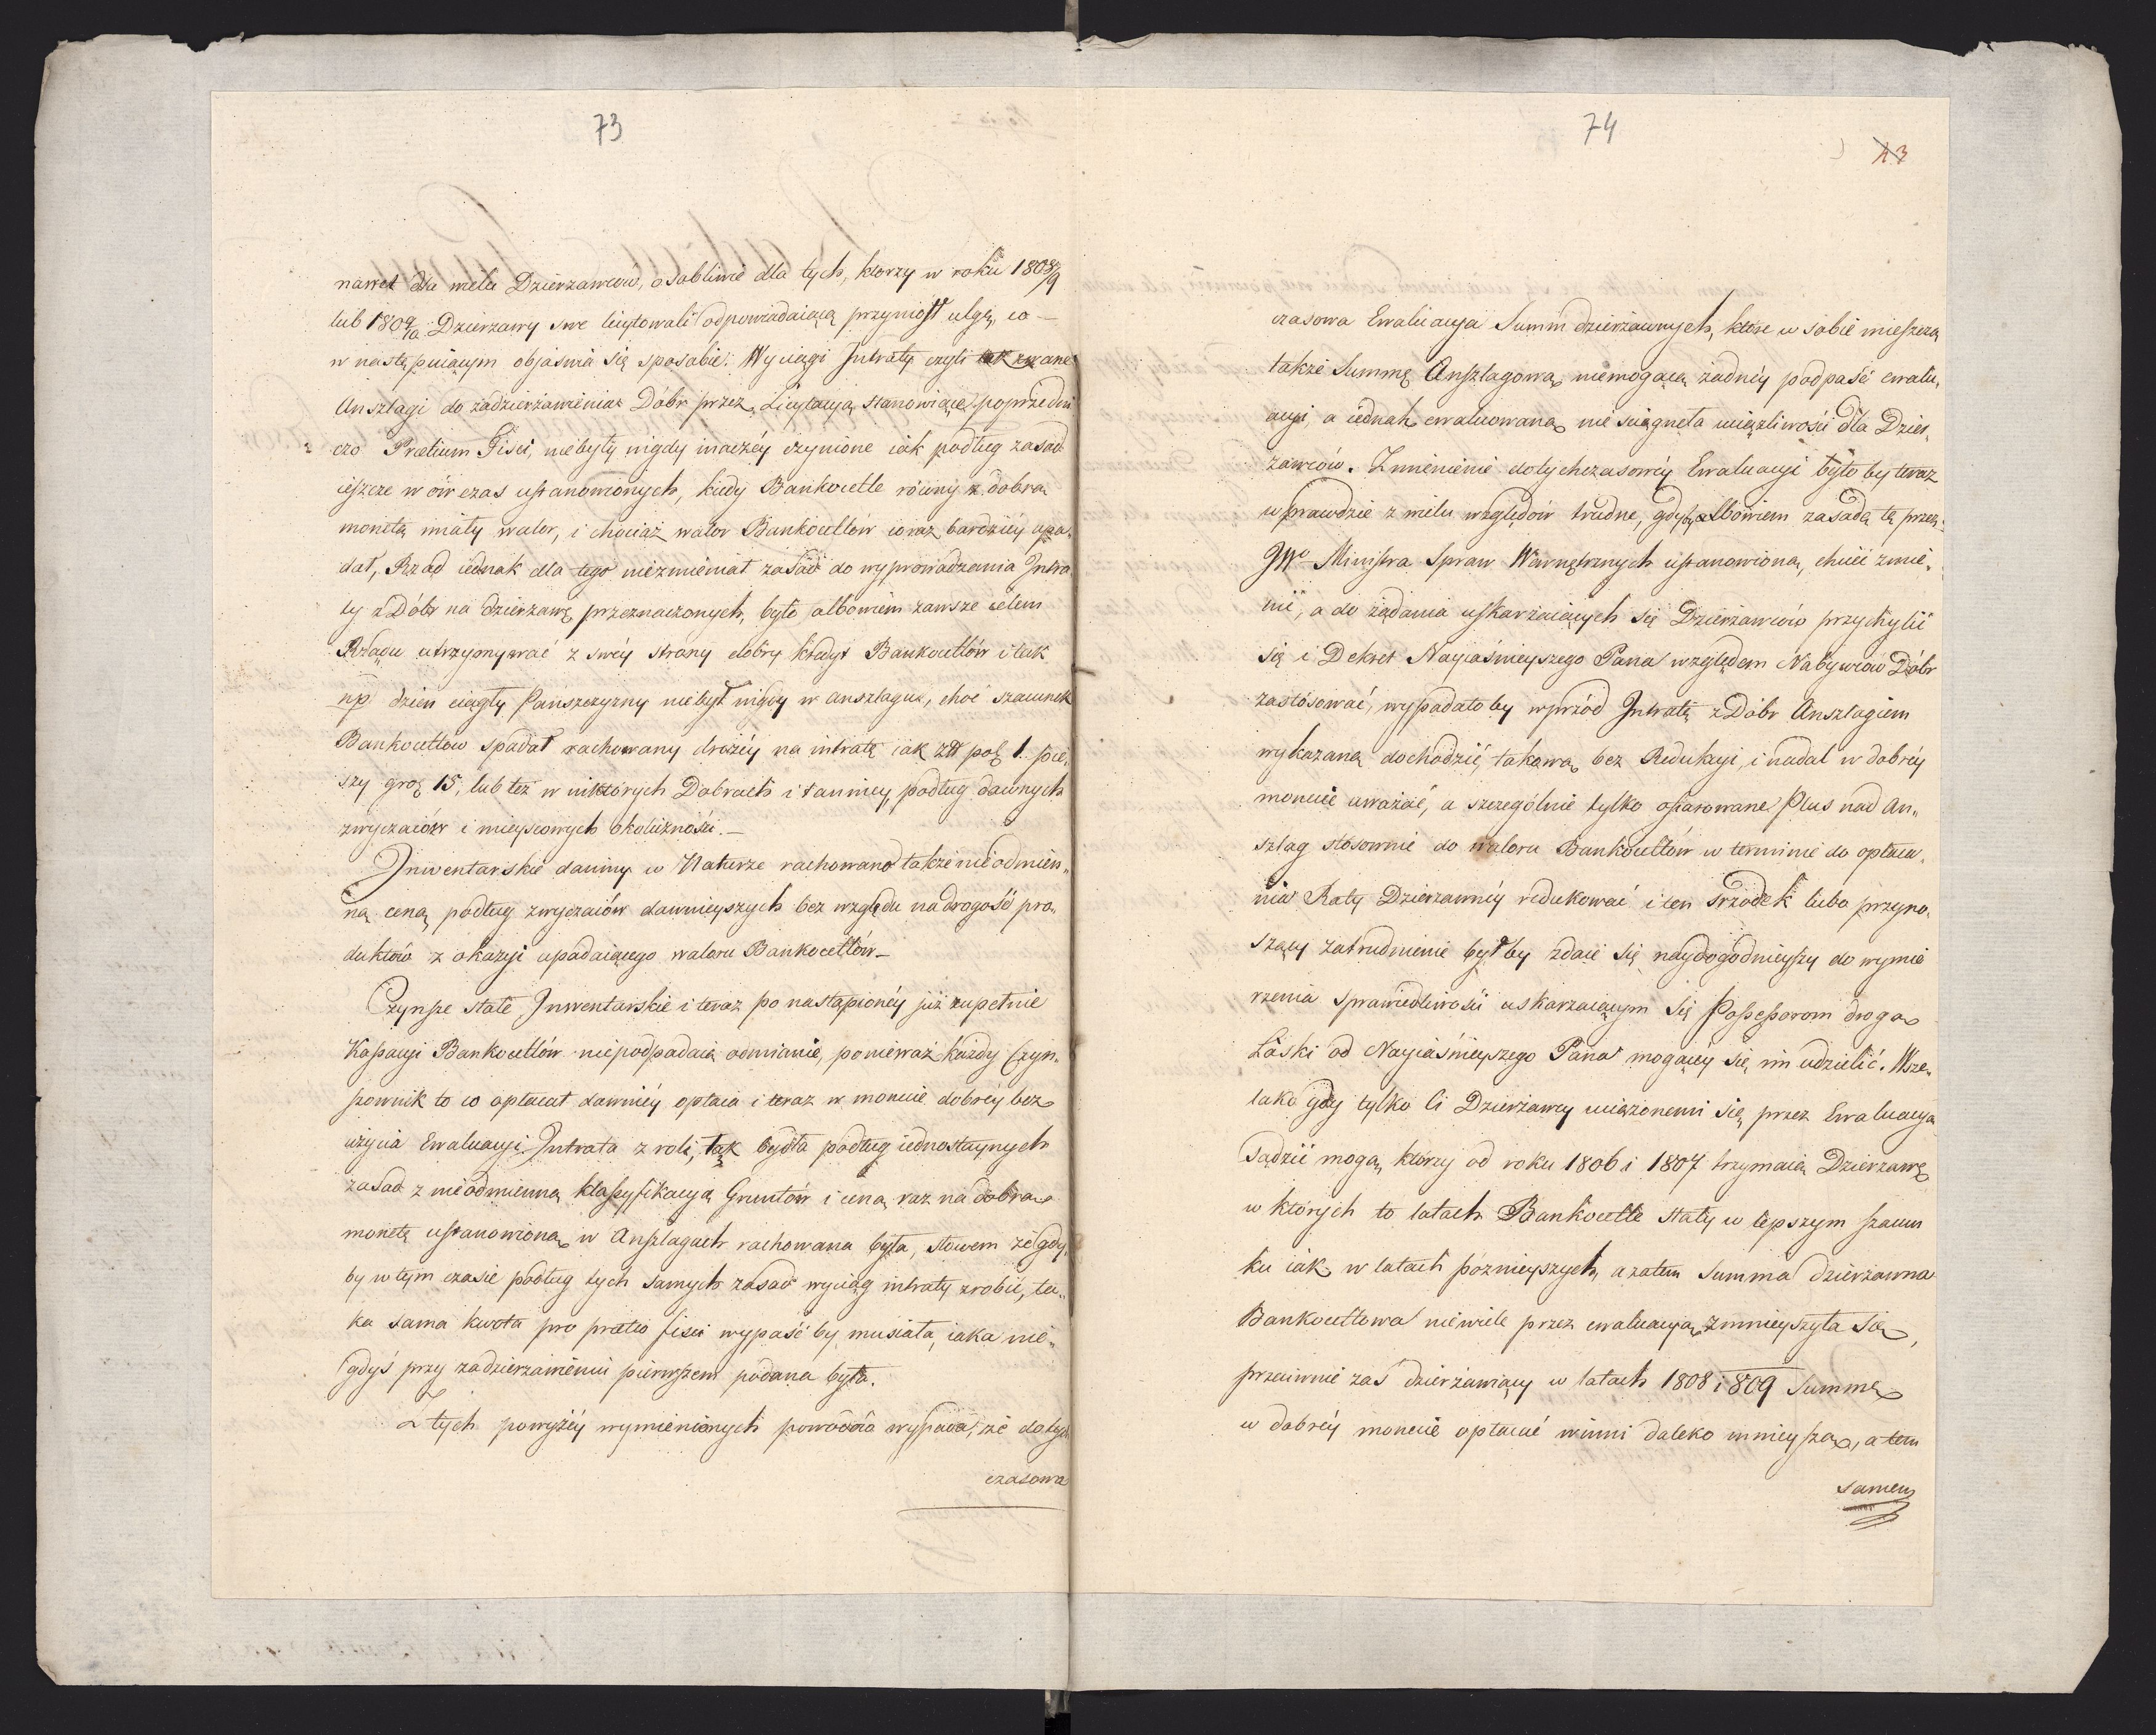 73
nawet dla wielu Dzierzawców, osobliwie dla tych, ktorzy w roku 1808/9
lub 1809/10 Dzierzawy swe licytowali odpowiadaiącą przyniosł ulgę, co —
w następuiącym objaśnia się sposobie: Wyciągi Intraty czyli tak zwane
Anszlagi do zadzierżawienia Dóbr przez Licytacyą stanowiące poprzedni
czo Praetium Fisci, niebyły nigdy inaczéy czynione iak podług zasad
ieszcze w ów czas ustanowionych, kiedy Bankocetle równy z dobrą
monetą miały walor, i chociaż walor Bankocetlów coraz bardziéy upa„
dał, Rząd iednak dla tego niezmieniał zasad do wyprowadzenia Intra
ty z Dóbr na dzierzawę przeznaczonych, było albowiem zawsze celem
Rządu utrzymywać z swéy strony dobry kredyt Bankocetlów i tak
np dzień ciągły Panszczyzny niebył nigdy w anszlagu, choć szacunek
Bankocetlow spadał rachowany drożéy na intratę iak zł pol 1. pie„
szy gro 15, lub też w niktórych Dobrach i taniiey podług dawnych
zwyczaiów i mieyscowych okoliczności.—
Inwentarskie daniny w Naturze rachowano także nieodmien„
ną ceną podług zwyczaiów dawnieyszych bez względu na drogość pro„
duktów z okazyi upadaiącego waloru Bankocetlów—
Czynsze stałe Inwentarskie i teraz po nastąpionéy już zupełnie
Kassacyi Bankocetlów niepodpadaią odmianie, ponieważ każdy Czyn„
szownik to co opłacał dawniéy opłaca i teraz w monecie dobréy bez
użycia Ewaluacyi. Intrata z roli, łąk bydła podług iednostaynych
zasad z nieodmienną klassyfikacyą Gruntów i ceną raz na dobrą
monetę ustanowioną w Anszlagach rachowana była, słowem że gdy„
by w tym czasie podług tych samych zasad wyciąg intraty zrobić, ta„
ka sama kwota pro pretio fisci wypaść by musiała, iaka nie„
gdyś przy zadzierzawieniu pierwszem podana była.
Z tych powyżéy wymienionych powodów wypada, że dotych
czasowa
74
43
czasowa Ewaluacya Summ dzierżawnych, które w sobie mieszczą
także Summę Anszlagową niemogącą żadnéy podpaść ewalu„
acyi, a iednak ewaluowaną nie ściągneła uciążliwości dla Dzier„
żawców. Zmienienie dotychczasowéy Ewaluacyi było by teraz
wprawdzie z wielu względów trudne, gdyby albowiem zasadę tę przez
JWo Ministra Spraw Wewnętrznych ustanowioną, chcieć zmie„
nić, a do żądania uskarżaiących się Dzierżawców przychylić
się i Dekret Nayiaśnieyszego Pana względem Nabywców Dóbr
zastósować, wypadało by wprzód Intratę z Dóbr Anszlagiem
wykazaną dochodzić, takową bez Redukcyi, i nadal w dobréy
monecie uważać, a szczególnie tylko ofiarowane Plus nad An„
szlag stósownie do waloru Bankocetlów w terminie do opłaca„
nia Raty Dzierzawnéy redukować i ten srzodek lubo przyno„
szący zatrudnienie był by zdaie się naydogodnieyszy do wymie
rzenia sprawiedliwości uskarzaiącym się Possessorom drogą
Łaski od Nayiaśnieyszego Pana mogącéy się im udzielić. Wsze„
lako gdy tylko li Dzierżawcy uciążonemi się przez Ewaluacyą
sądzić mogą, którzy od roku 1806 i 1807 trzymaią Dzierzawę
w których to latach Bankocetle stały w lepszym szacun
ku iak w latach póznieyszych, a zatem Summa dzierżawna
Bankocetlowa niewiele przez ewaluacyą zmnieyszyła się,
przeciwnie zas dzierżawiący w latach 1808 i 1809 Summę
w dobréy monecie opłacać winni daleko mnieyszą, a tem
samem